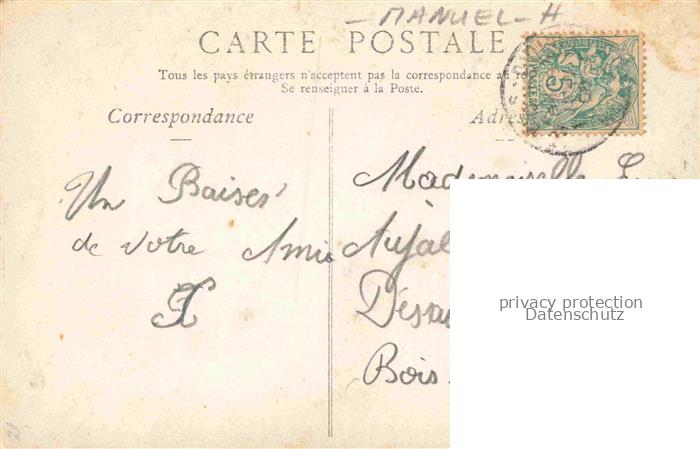 - MANUEL - H
CARTE POSTALE
Tous les pays étrangers n'acceptent pas la correspondance au
Se renseigner à la Poste.
Correspondance
Adres
Un Baiser
de votre Amie
Mademoiselle
Bois
privacy protection
Datenschutz